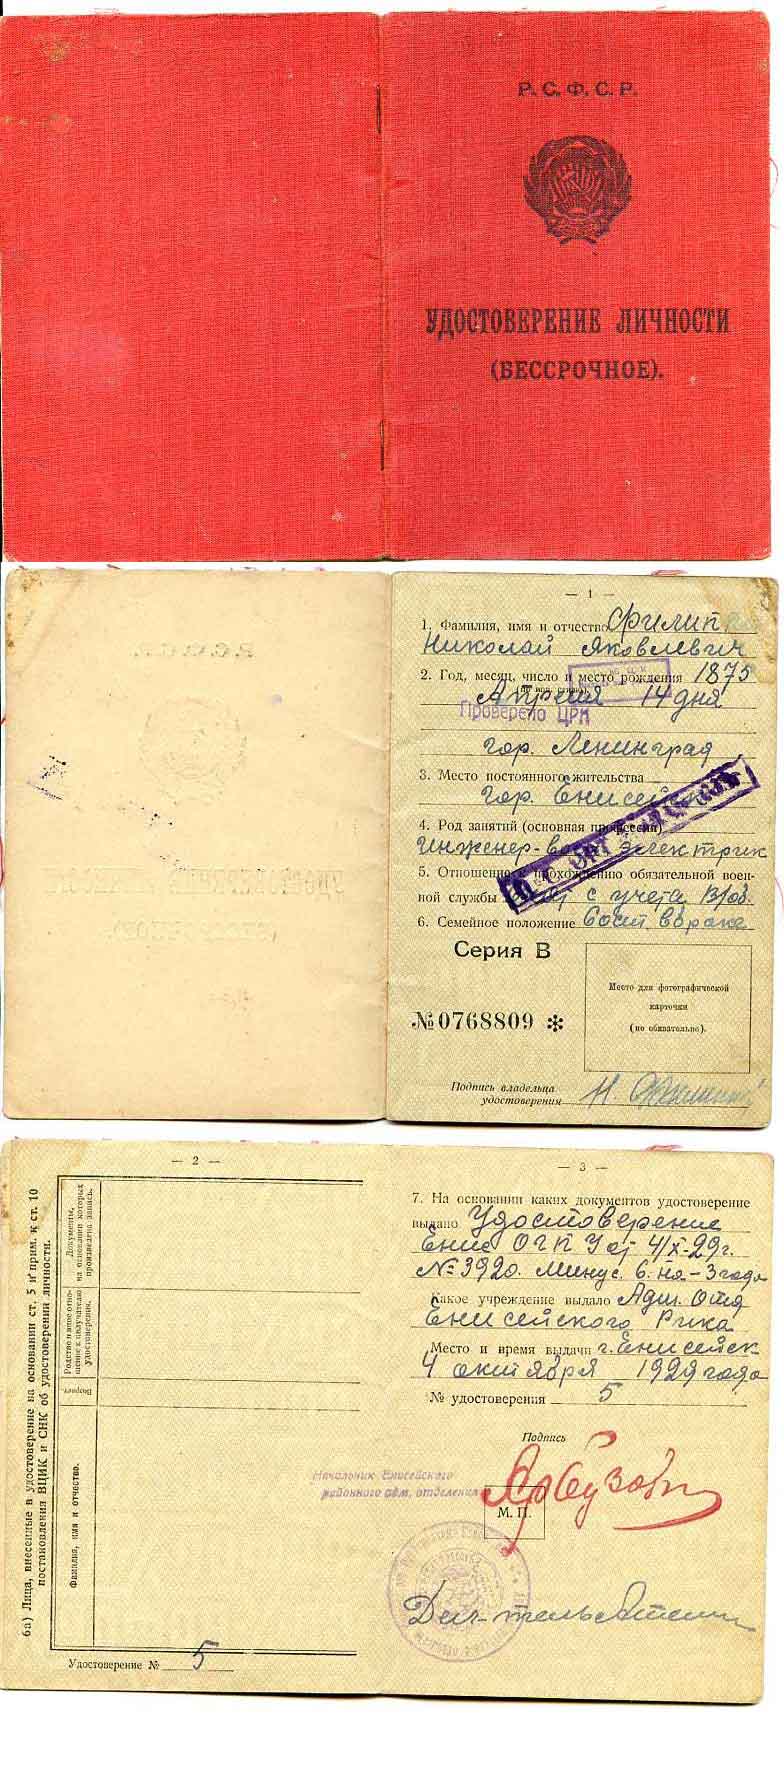 Р. С. Ф. С. Р.
УДОСТОВЕРЕНИЕ ЛИЧНОСТИ
(БЕССРОЧНОЕ).
— 1 —
1. Фамилия, имя и отчество Филип
Николай Яковлевич
2. Год, месяц, число и место рождения 1875
Апреля 14 дня
Проверено ЦРК
гор. Ленинград
3. Место постоянного жительства
гор. Енисейск
4. Род занятий (основная профессия)
Инженер- электрик
5. Отношение к прохождению обязательной воен-
ной службы с учета
6. Семейное положение Сост. в браке
Серия В
Место для фотографической
карточки
(не обязательно).
№ 0768809 *
Подпись владельца
удостоверения Н.
— 2 —
6а) Лица, внесенные в удостоверение на основании ст. 5 и прим. к ст. 10
постановления ВЦИК и СНК об удостоверении личности.
Документы,
на основании которых
произведена запись.
Родство и иное отно-
шение к получателю
удостоверения.
Возраст.
Фамилия, имя и отчество.
Удостоверение № 5
— 3 —
7. На основании каких документов удостоверение
выдано Удостоверение
Енис от 4/X-29г.
№ 3920. Минус. 6. на - 3 года
Какое учреждение выдало Адм. Отд
Енисейского Рика
Место и время выдачи г. Енисейск
4 октября 1929 года
№ удостоверения 5
Подпись
Начальник Енисейского
районного адм. отделения
Арбузов
М. П.